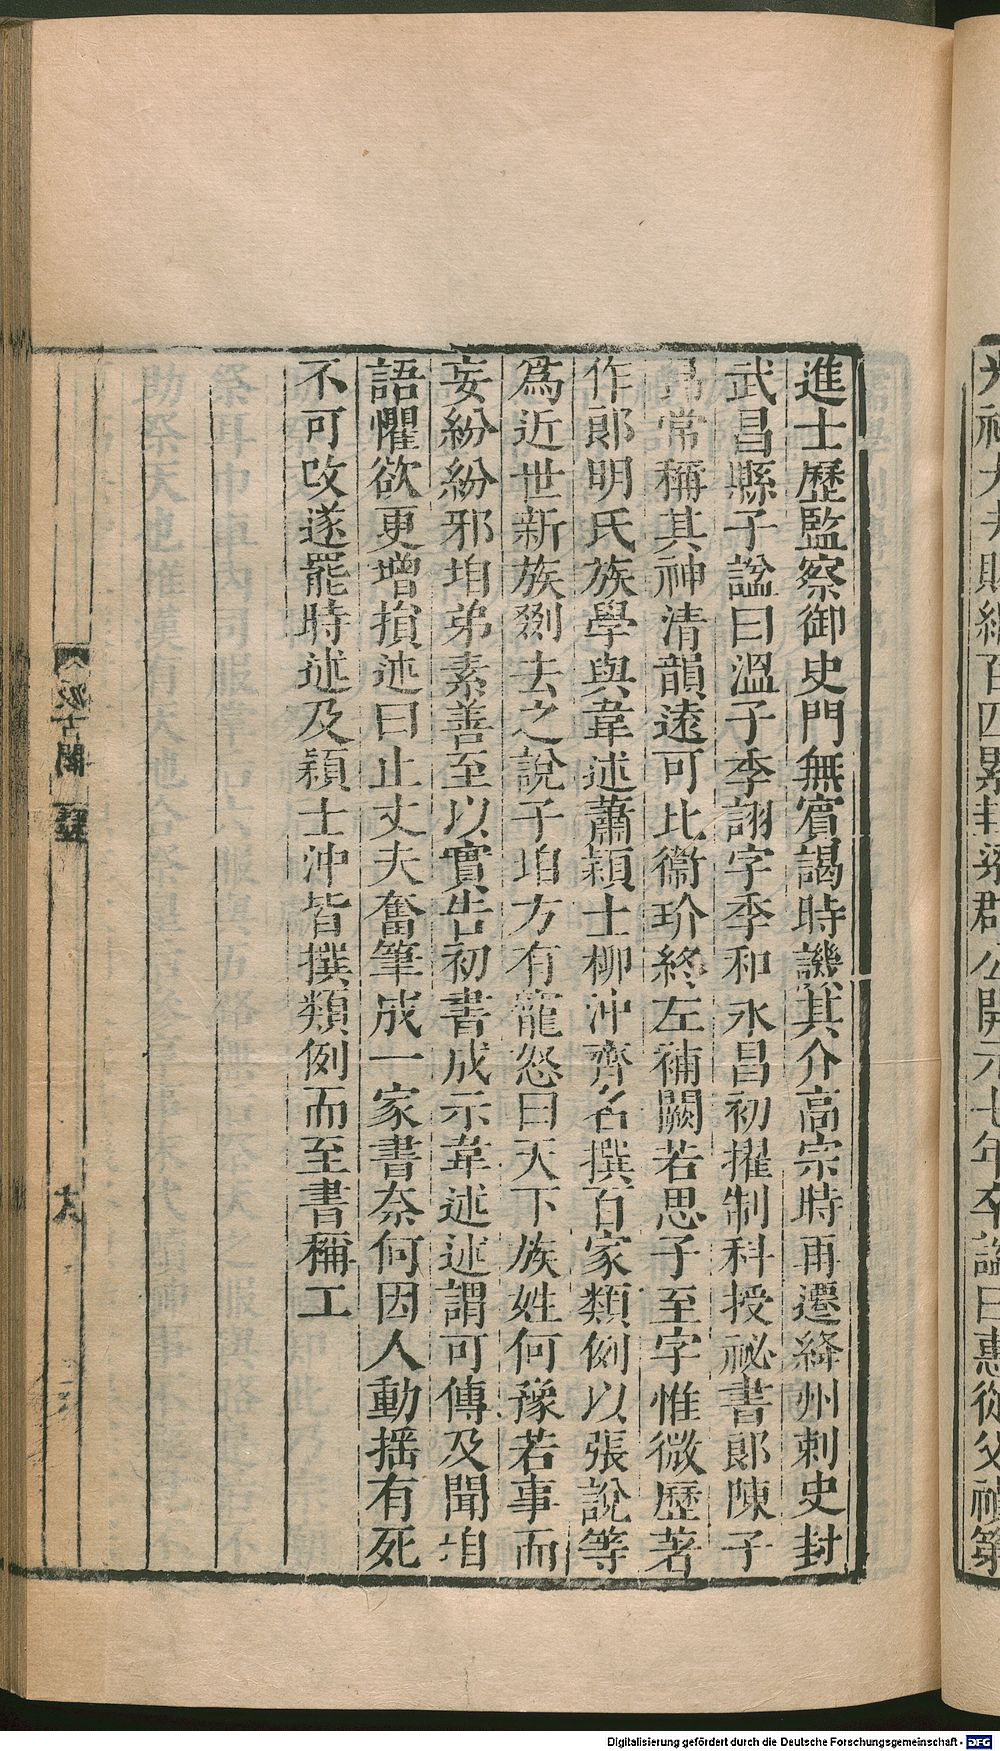 光祿大夫賜絹百匹累封梁郡公開元七年卒謚曰惠從父禎第
進士歷監察御史門無賔謁時譏其介高宗時再遷絳州刺史封
武昌縣子謚曰溫子季詡字季和永昌初擢制科授祕書郎陳子
昂常稱其神清韻遠可比衞玠終左補闕若思子至字惟微歷著
作郎明氏族學與韋述蕭頴士柳沖齊名撰百家類例以張說等
爲近世新族剟去之說子垍方有寵怒曰天下族姓何豫若事而
妄紛紛邪垍弟素善至以實告初書成示韋述述謂可傳及聞垍
語懼欲更增損述曰止丈夫奮筆成一家書奈何因人動揺有死
不可改遂罷時述及頴士沖皆撰類例而至書稱工
汲古閣
Digitalisierung gefördert durch die Deutsche Forschungsgemeinschaft - DFG